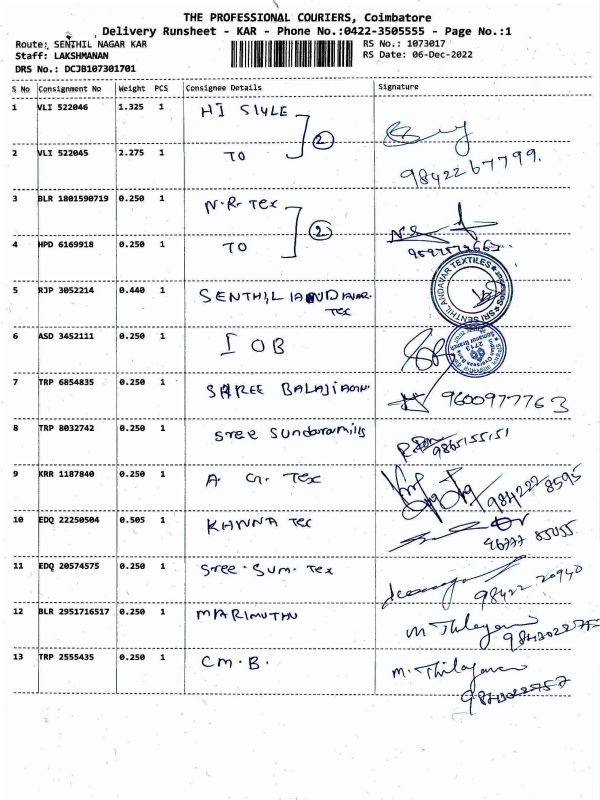 THE PROFESSIONAL COURIERS, Coimbatore
Delivery Runsheet - KAR - Phone No.:0422-3505555 - Page No.:1
Route: SENTHIL NAGAR KAR RS No.: 1073017
Staff: LAKSHMANAN RS Date: 06-Dec-2022
DRS No.: DCJB107301701
S No Consignment No Weight PCS Consignee Details Signature
1 VLI 522046 1.325 1 HI STYLE
2
2 VLI 522045 2.275 1 TO
9842267799.
3 BLR 1801590719 0.250 1 N.R. Tex
2
4 HPD 6169918 0.250 1 TO
SRI SENTHIL ANDAVAR TEXTILES
5 RJP 3052214 0.440 1 SENTHIL ANDAVAR
Tex
6 ASD 3452111 0.250 1 IOB
Indian Overseas Bank
2713
7 TRP 6854835 0.250 1 SHREE BALAJI
9600977763
8 TRP 8032742 0.250 1 Sree Sundaramills
9865155151
9 KRR 1187840 0.250 1 A. G. Tex
984222 8595
10 EDQ 22250504 0.505 1 KANNA Tex
96777 85055
11 EDQ 20574575 0.250 1 Sree. Sum. Tex
98422 20940
12 BLR 2951716517 0.250 1 MARIMUTHU
13 TRP 2555435 0.250 1 C.M.B. M. Thilagavan
9843022757